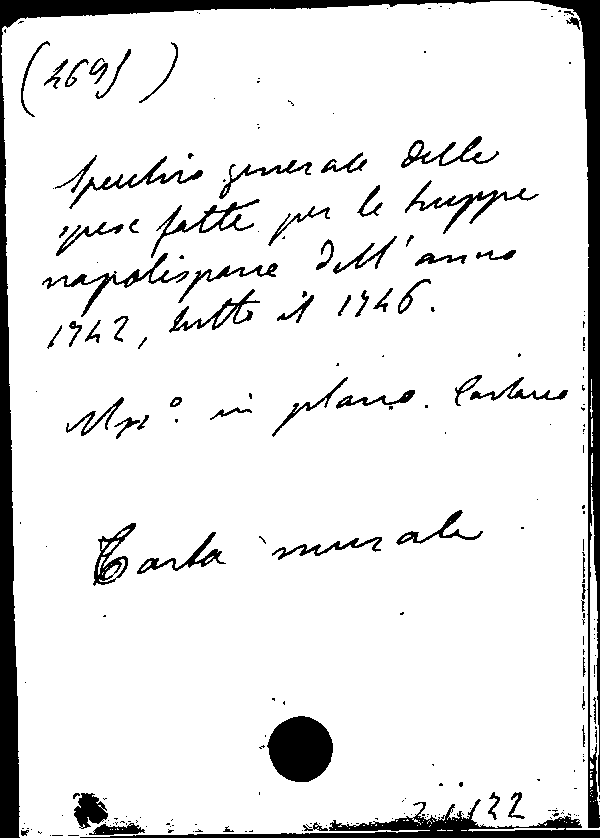 (4695)
Specchio generale delle
spese fatte per le truppe
napolispane dell'anno
1742, tutto il 1746.
Mss°. in plano. Cartaceo
Carta murale